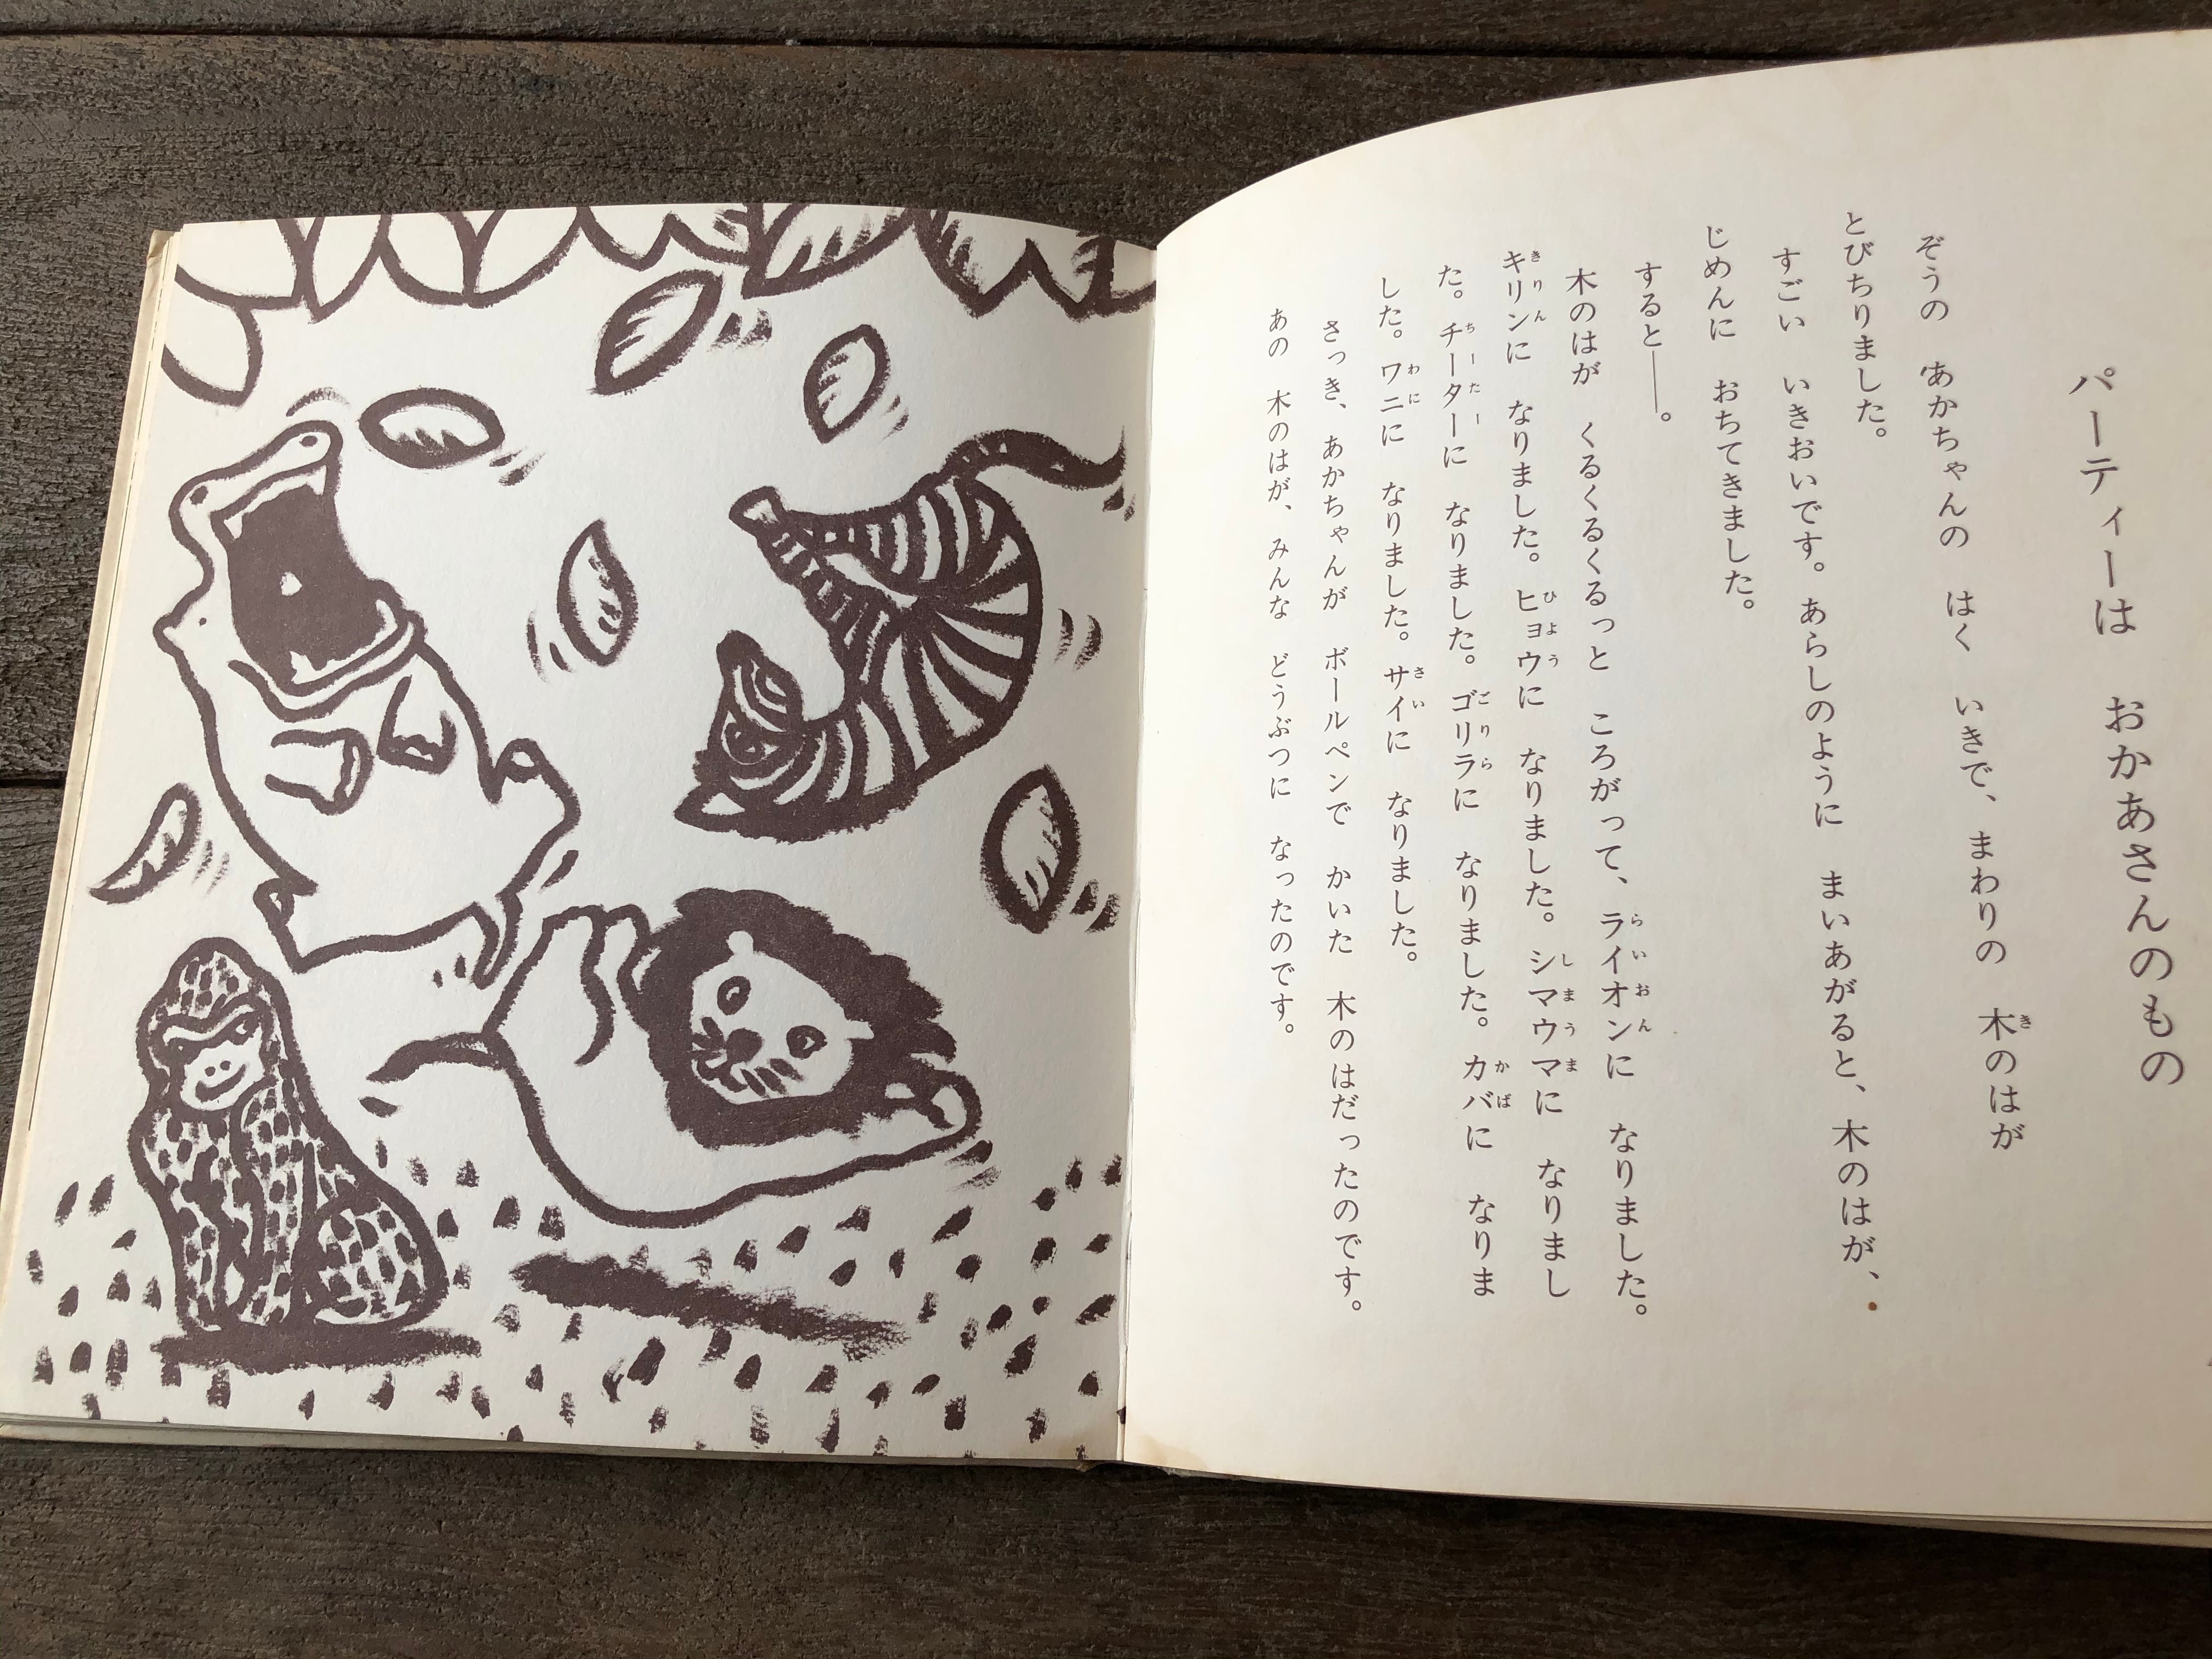 パーティーは　おかあさんのもの
ぞうの　あかちゃんの　はく　いきで、まわりの　木のはが
とびちりました。
すごい　いきおいです。あらしのように　まいあがると、木のはが、
じめんに　おちてきました。
すると――。
木のはが　くるくるくるっと　ころがって、ライオンに　なりました。
キリンに　なりました。ヒョウに　なりました。シマウマに　なりまし
た。チーターに　なりました。ゴリラに　なりました。カバに　なりま
した。ワニに　なりました。サイに　なりました。
さっき、あかちゃんが　ボールペンで　かいた　木のはだったのです。
あの　木のはが、みんな　どうぶつに　なったのです。